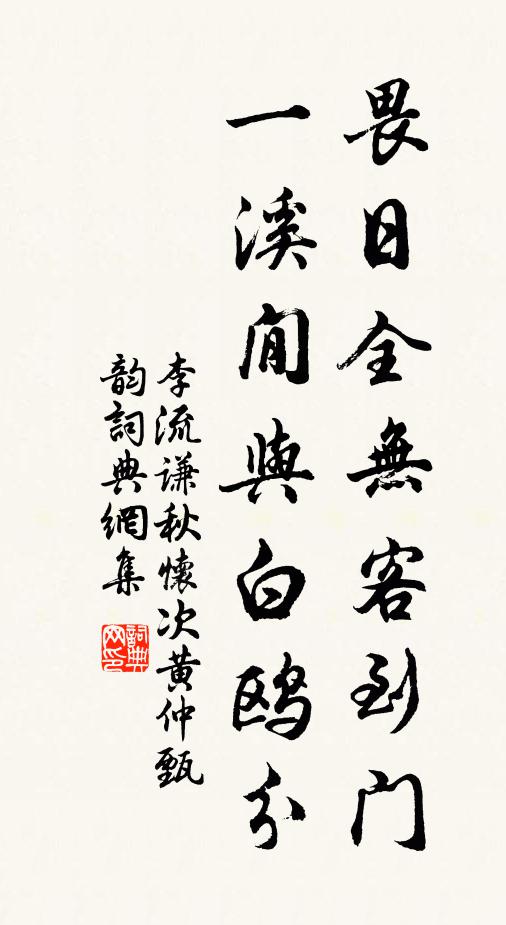 畏日全無客到門
一溪閒與白鷗分
李流謙秋懷次黃仲甄
韵詞典網集
詞典网印